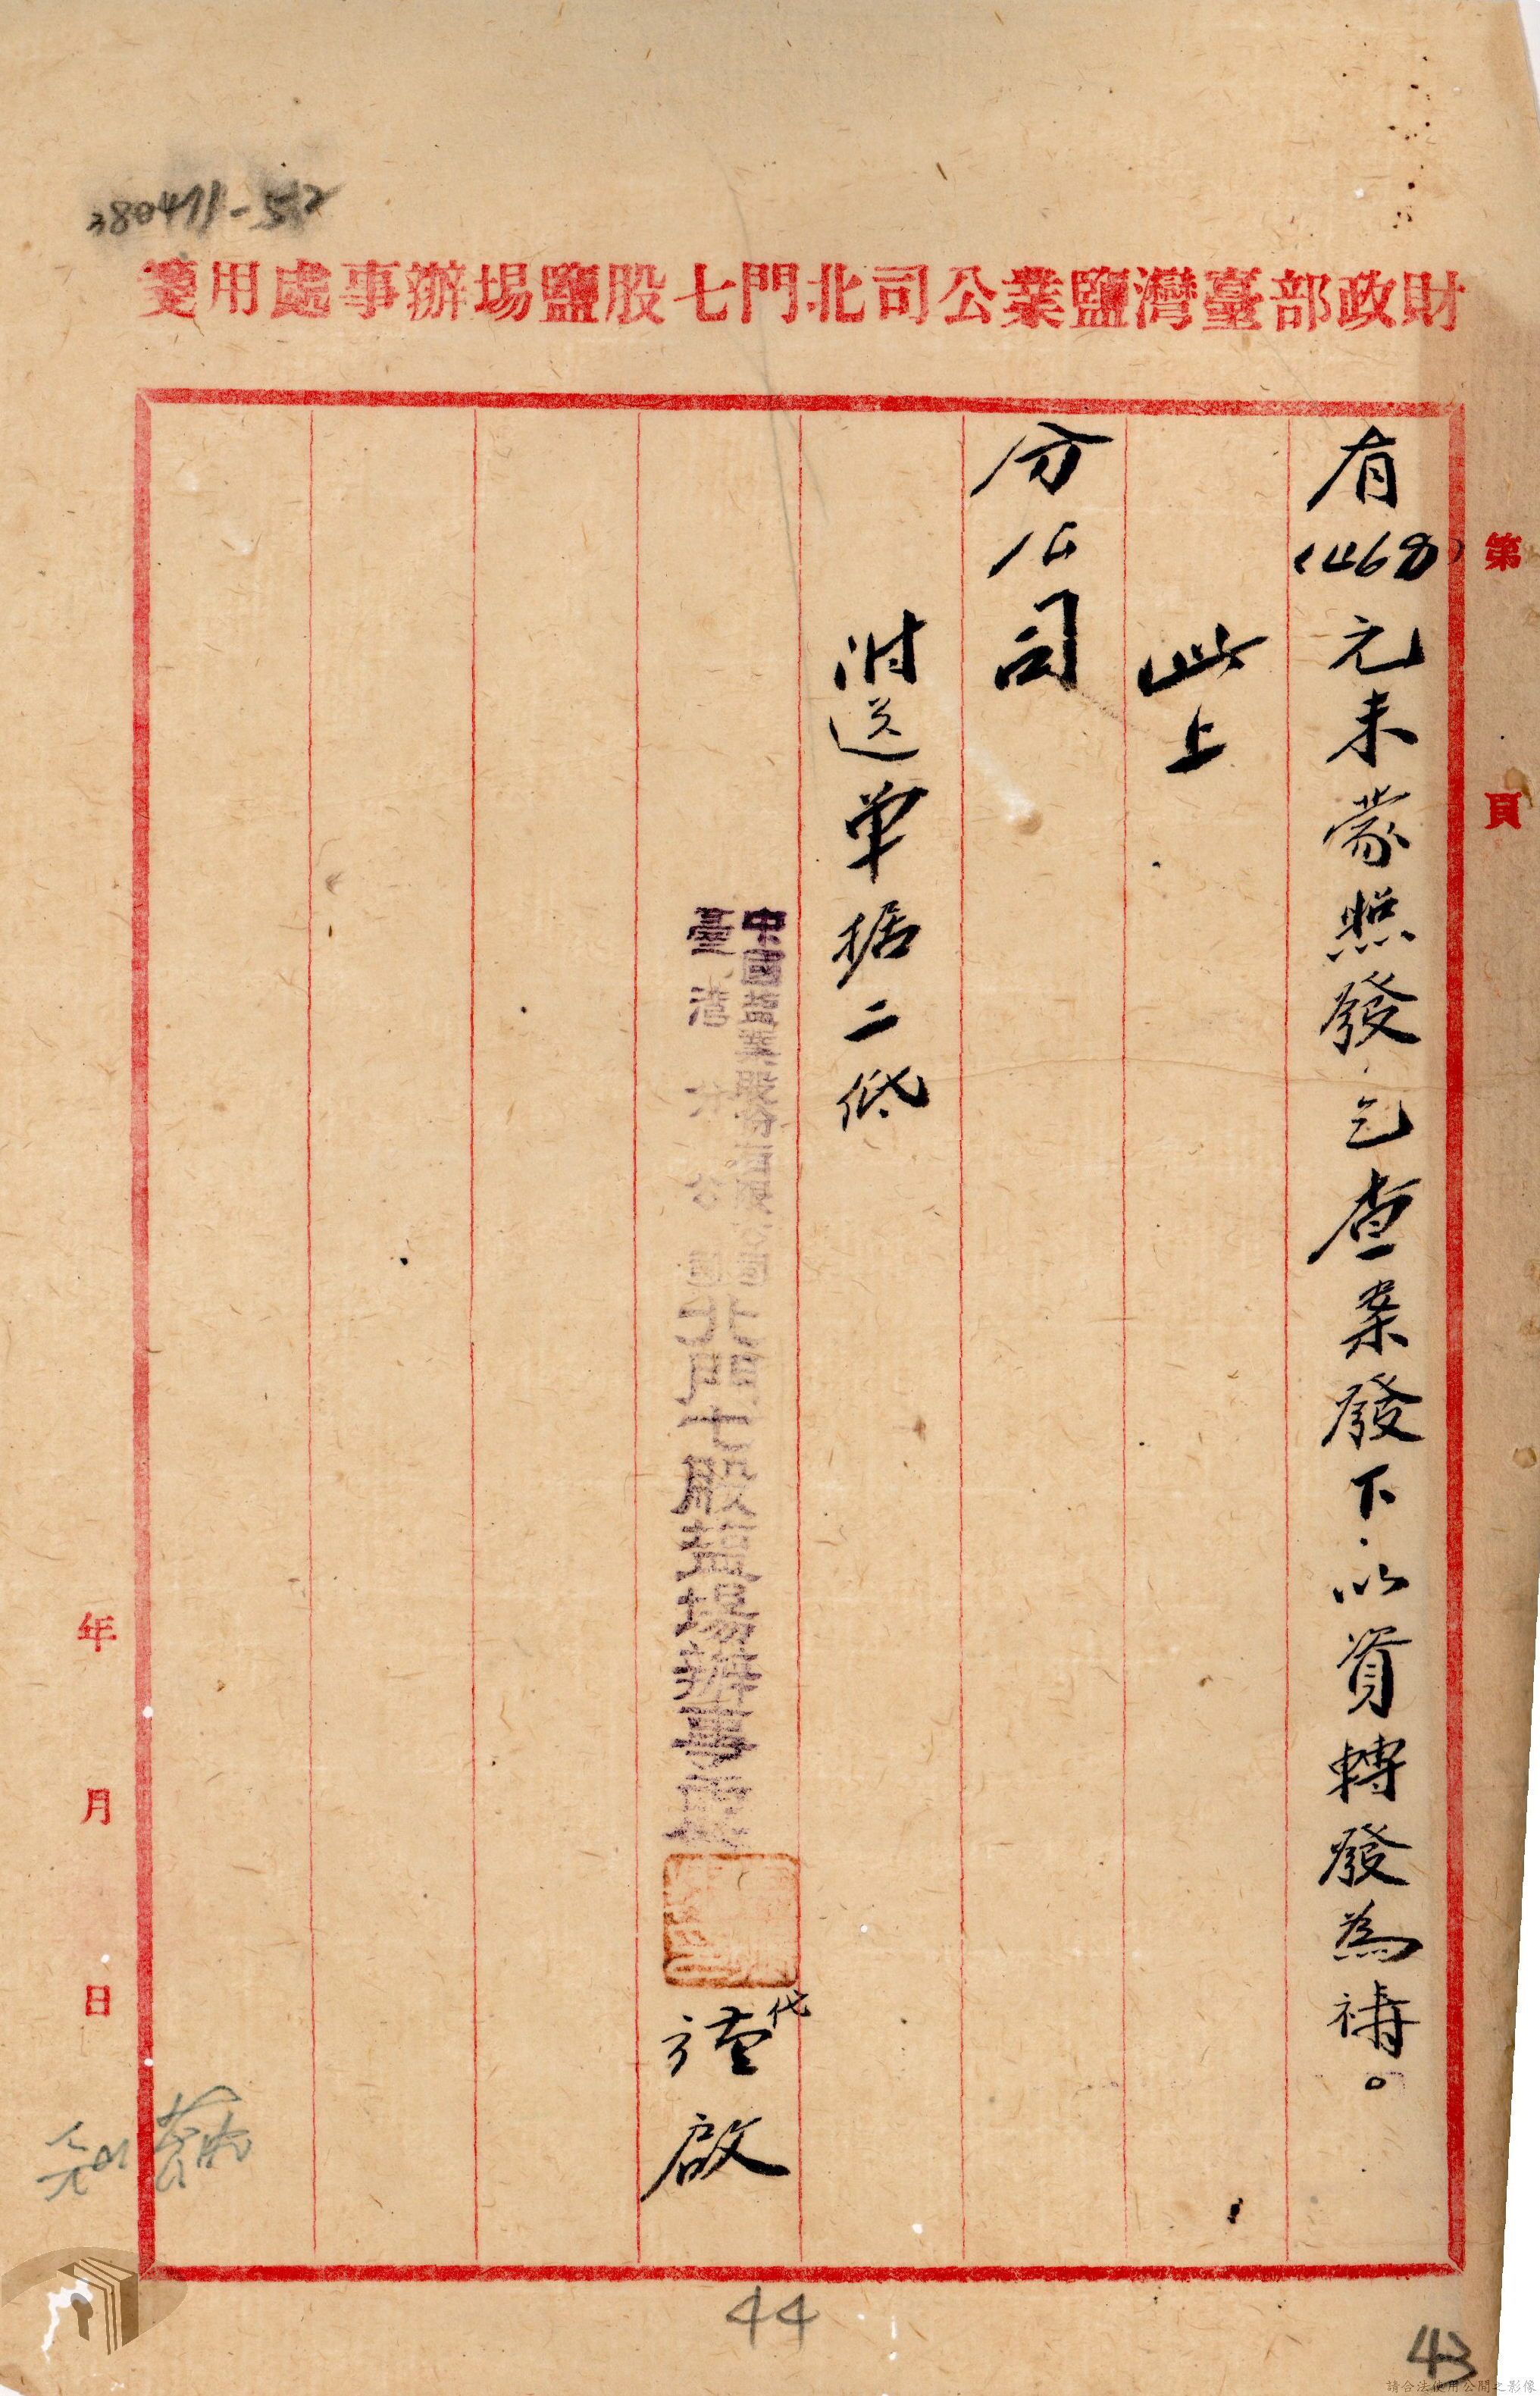 380471-52
財政部臺灣鹽業公司北門七股鹽場辦事處用箋
第 頁
有(468)元未蒙照發,乞查案發下,以資轉發為禱。
此上
分公司
附送单据二纸
中國鹽業股份有限公司
臺灣分公司
北門
北門七股鹽場辦事處
代
謹啟
年 月 日
44
43
請合法使用公開之影像